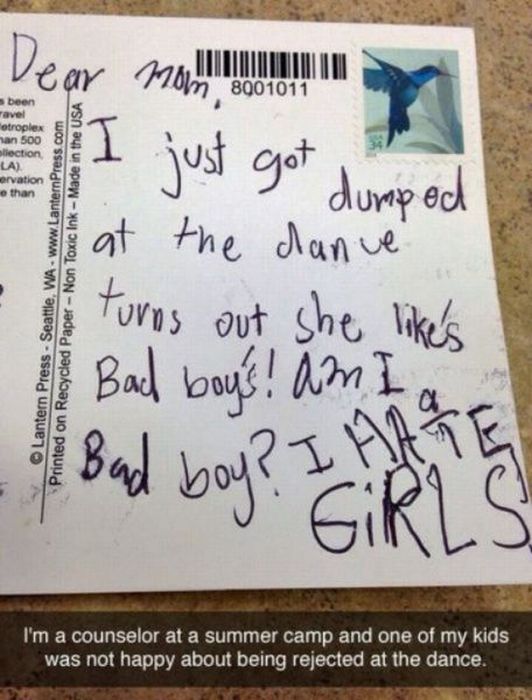 Dear mom,
8001011
34
I just got
dumped
at the dance
turns out she like's
Bad boy's! Am I a
Bad boy? I HATE
GiRLS
s been
ravel
etroplex
han 500
ollection,
LA).
ervation
e than
© Lantern Press - Seattle, WA - www.LanternPress.com
Printed on Recycled Paper – Non Toxic Ink – Made in the USA
I'm a counselor at a summer camp and one of my kids
was not happy about being rejected at the dance.